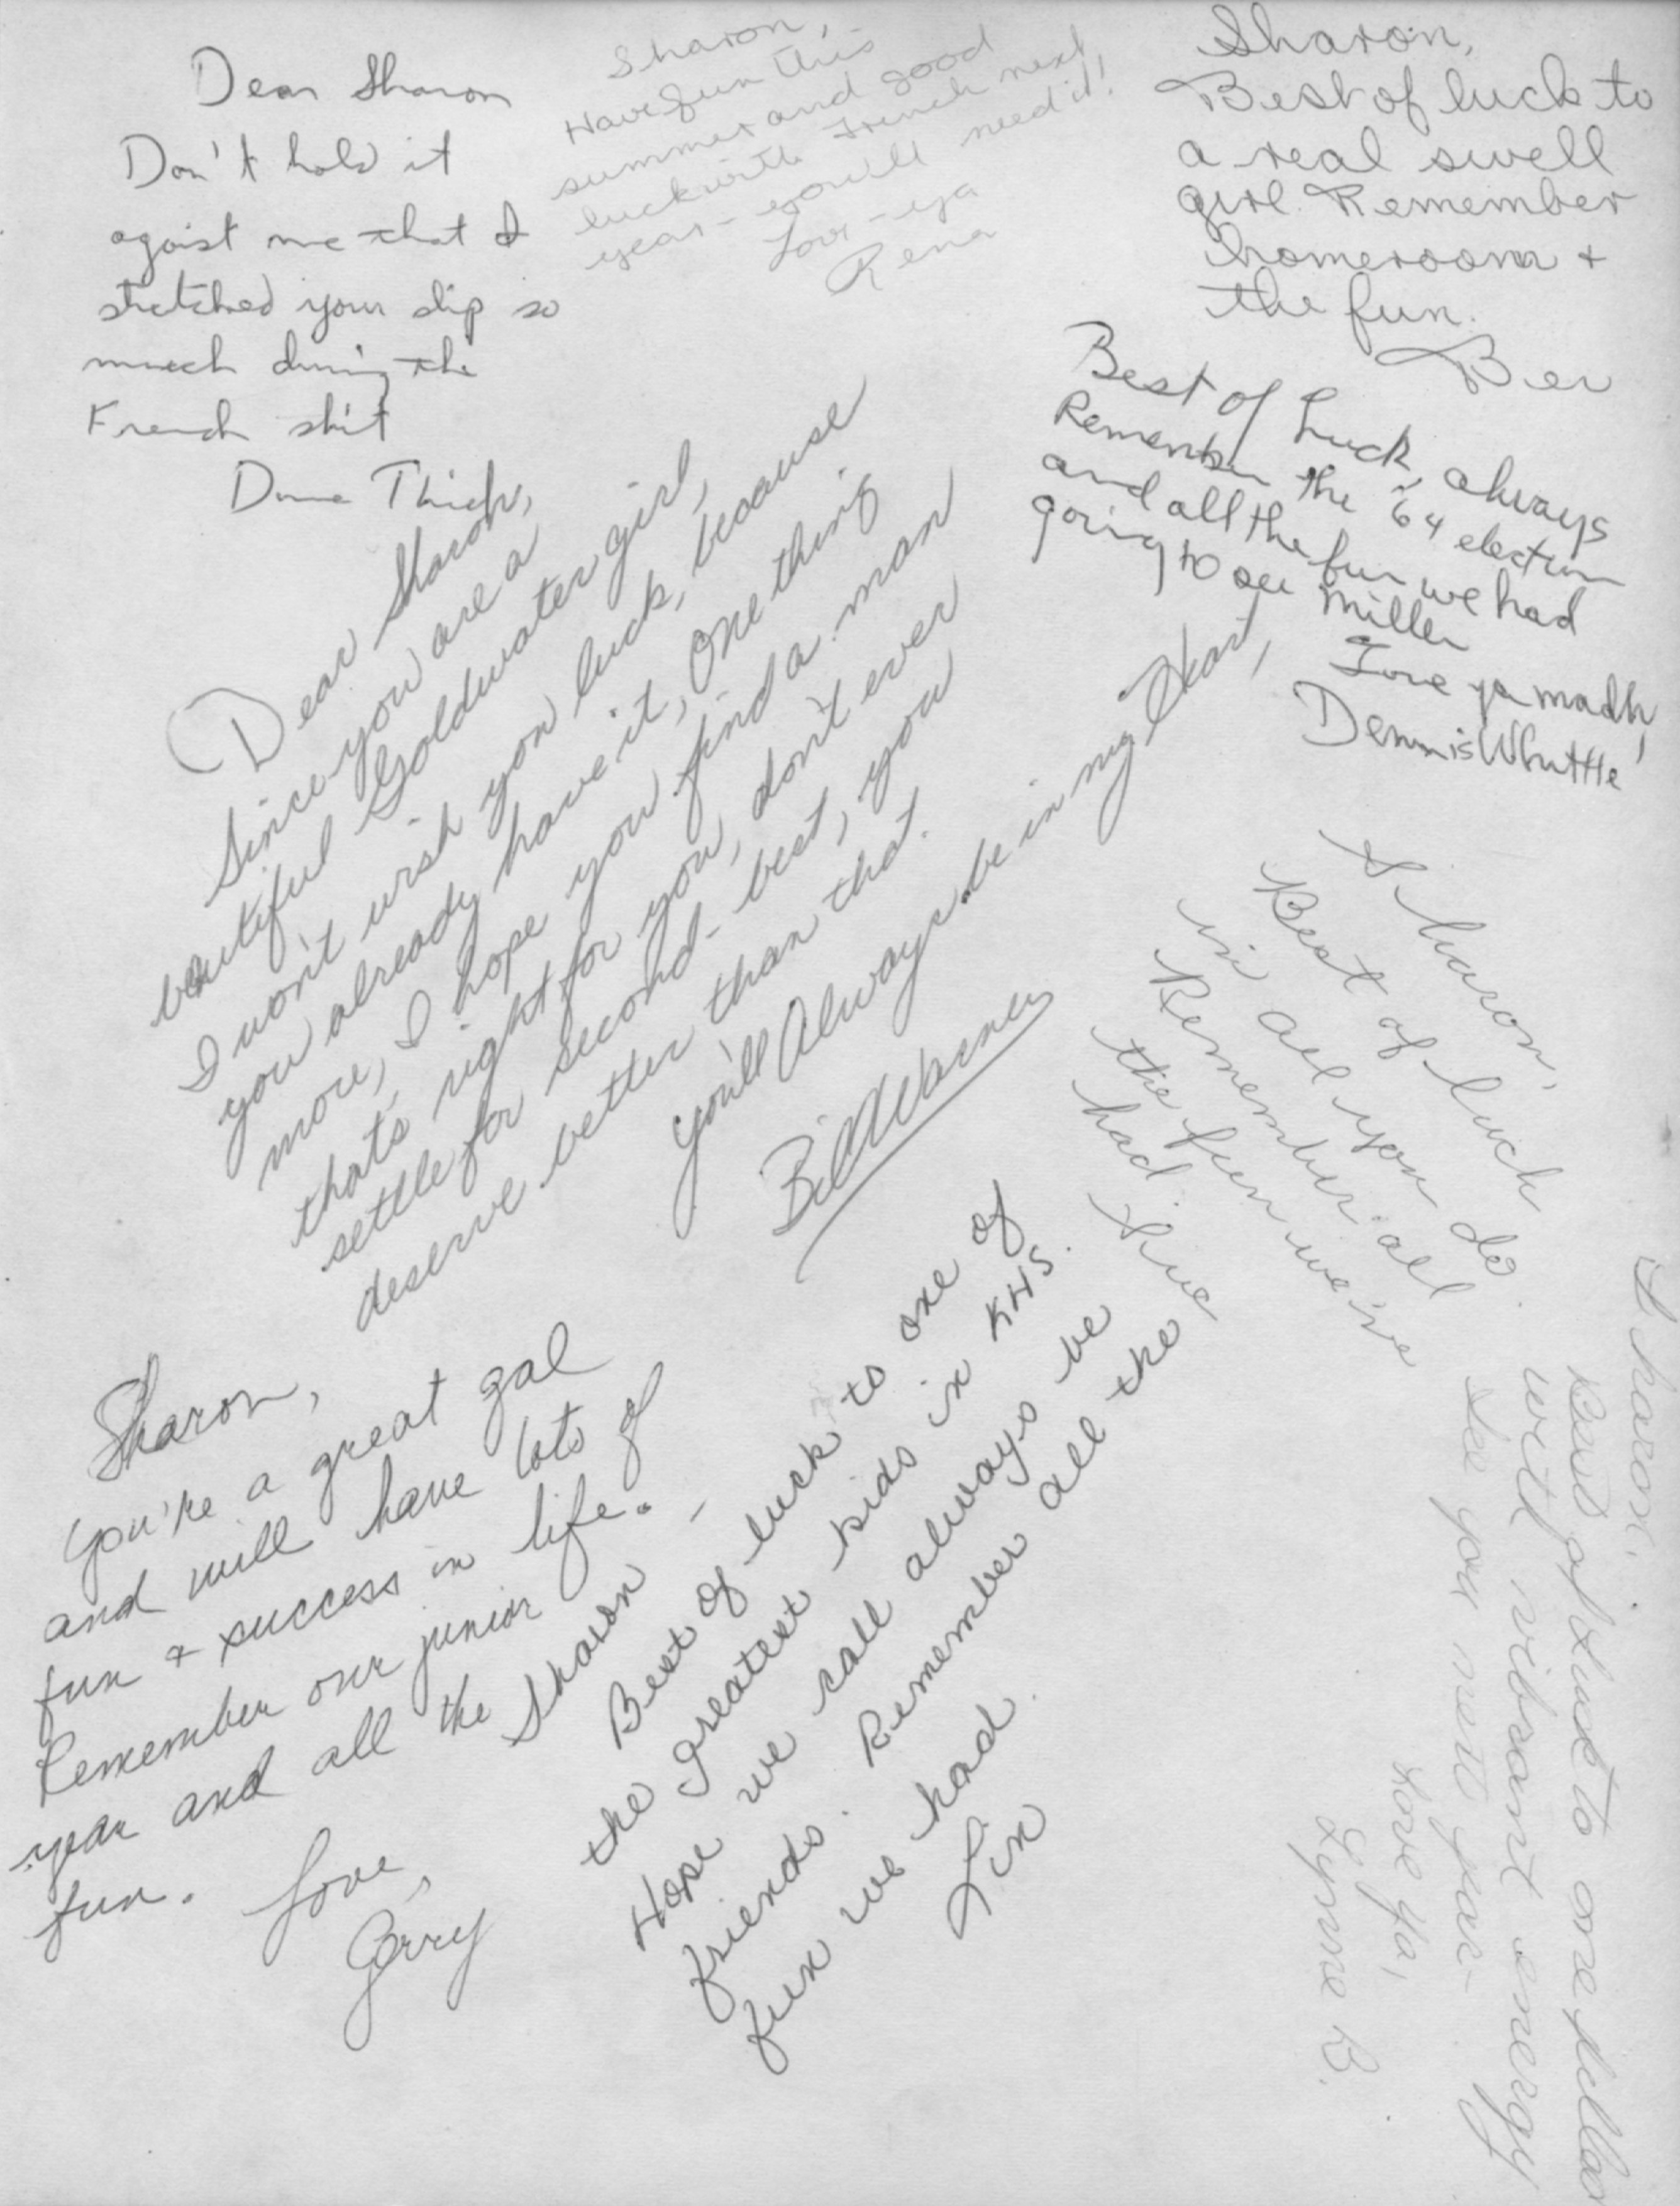 Dear Sharon
Don't hold it
agaist me that I
stretched your slip so
much during the
French skit
Dave
Sharon,
Have fun this
summer and good
luck with French next
year - you'll need it!
Love - ya
Rena
Sharon,
Best of luck to
a real swell
girl. Remember
homeroom +
the fun.
Bev
Best of Luck, always
Remember the '64 election
and all the fun we had
going to see Miller
Love ya madly,
Dennis
Dear Sharon,
Since you are a
beautiful Goldwater girl,
I won't wish you luck, because
you already have it, One thing
more, I hope you find a man
that's right for you, don't ever
settle for second-best, you
deserve better than that.
You'll Always be in my Heart,
Bill
Sharon,
Best of luck
in all you do.
Remember all
the fun we've
had.
Sue
Sharon,
You're a great gal
and will have lots of
fun & success in life.
Remember our junior
year and all the
fun.
Love,
Gerry
Sharon -
Best of luck to one of
the greatest kids in KHS.
Hope we call always be
friends. Remember all the
fun we had.
Lin
Sharon,
Good of luck to one
with vibrant energy
See you next year -
Love Ya,
Lynne B.